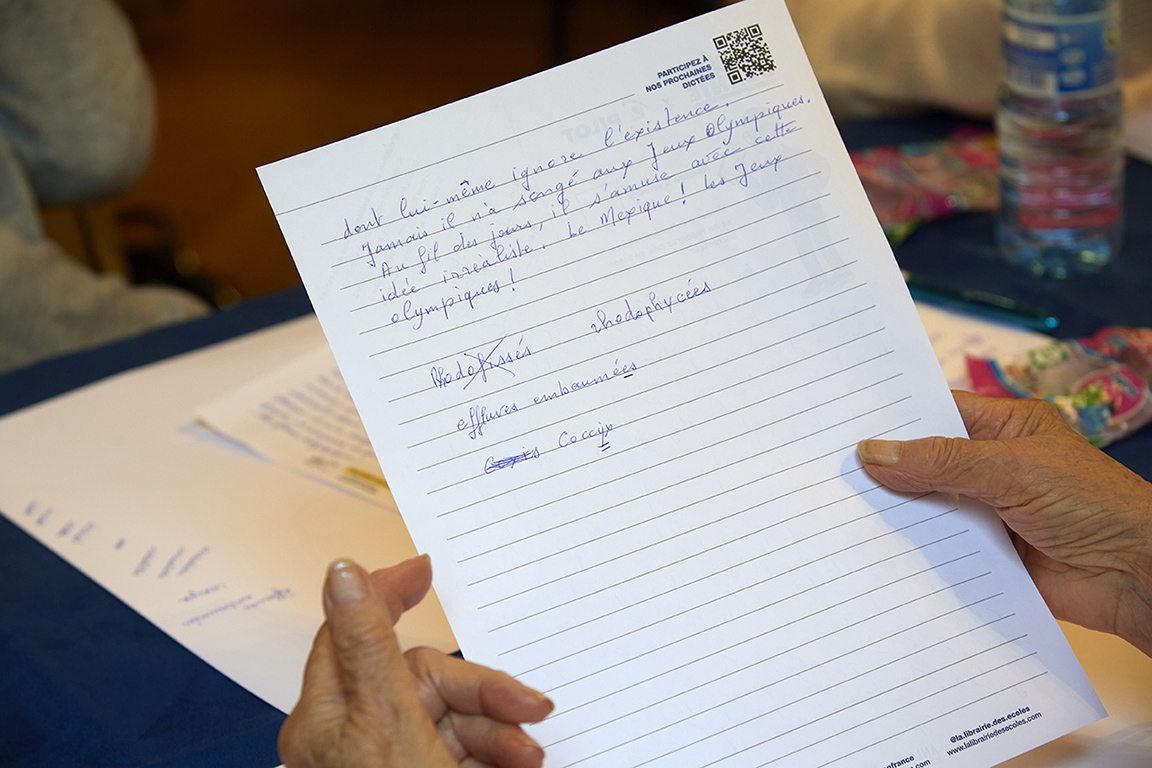 PARTICIPEZ À
NOS PROCHAINES
DICTÉES
dont lui-même ignore l'existence.
Jamais il n'a songé aux Jeux Olympiques.
Au fil des jours, il s'amuse avec cette
idée irréaliste. Le Mexique ! Les Jeux
olympiques !
rhodophycées
effluves embaumées
Coccyx
@la.librairie.des.ecoles
www.lalibrairiedesecoles.com